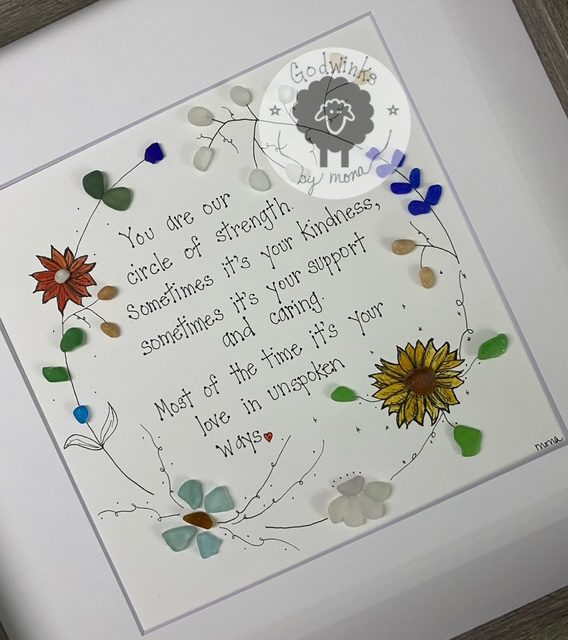 Godwinks
by mona
You are our
circle of strength.
Sometimes it's your kindness,
sometimes it's your support
and caring.
Most of the time it's your
love in unspoken
ways
mona